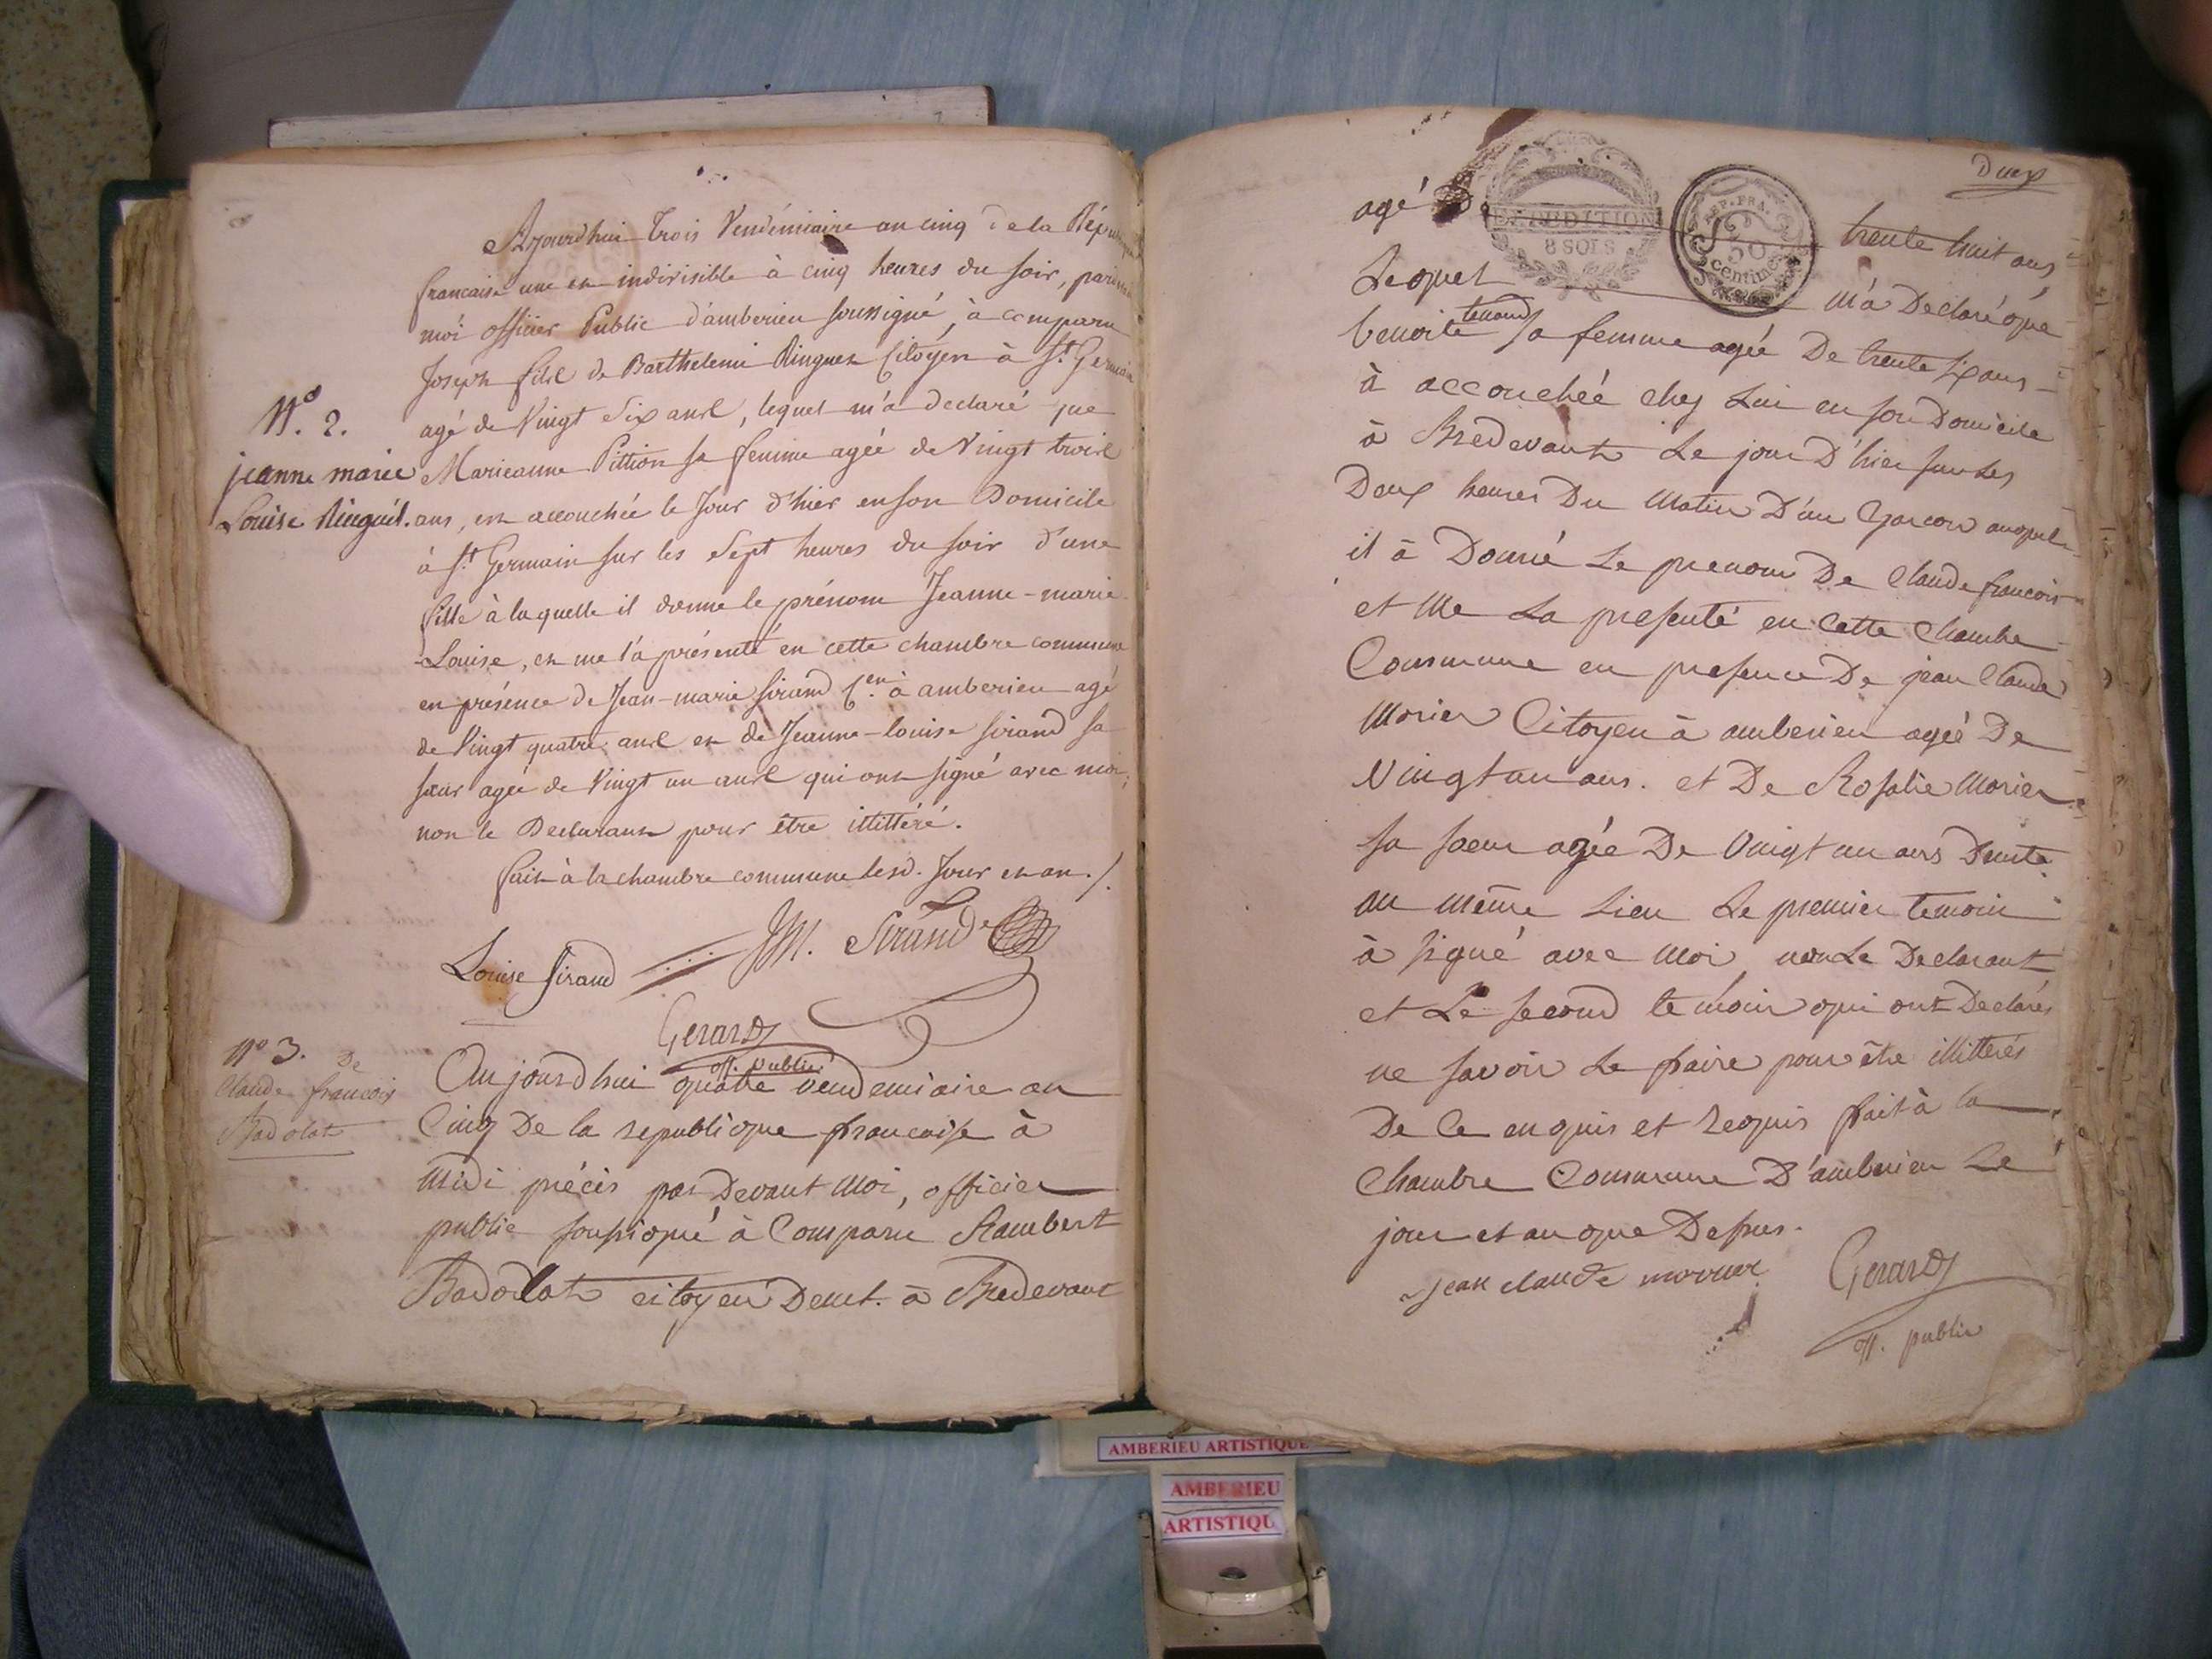 Aujourd'hui trois Vendémiaire an cinq de la Répu
francaise une et indivisible à cinq heures du soir, par
moi officier Public d'amberieu soussigné, à comparu
Joseph fils de Barthelemi Ringuet Citoyen à St. Germain
agé de Vingt Six ans, lequel m'a declaré que
Marieanne Pittion sa femme agée de Vingt trois
ans, est accouchée le Jour d'hier en son Domicile
à St. Germain sur les Sept heures du soir d'une
fille à laquelle il donne le prénom Jeanne-marie
Louise, et me l'a présenté en cette chambre commune
en présence de Jean-marie Sirand Cen. à amberieu agé
de Vingt quatre ans et de Jeanne-louise Sirand sa
sœur agée de Vingt un ans qui ont signé avec moi,
non le Declarant pour être illittéré.
fait à la chambre commune lesd. Jour et an ./.
Nº. 2.
jeanne marie
Louise Ringuét.
Louise Sirand JM. Sirand
Gerard
off. public
Nº 3. De
Claude francois
Badolat
Aujourdhui quatre vendemiaire an
Cinq De la republique francaise à
Midi précis par Devant Moi, officier
public soussigné à Comparu Rambert
Badolat citoyen Demt. à Bredevant
Deux
agé De trente huit ans,
EXPEDITION
8 SOLS
REP. FRA.
50
centimes
Lequel m'a Declaré que
benoite tenand sa femme agée De trente 4 ans
à accouchée chez Lui en son Domicile
à Bredevant Le jour D'hier sur Les
Deux heures Du Matin D'un Garcon auquel
il à Donné Le prenom De Claude francois
et Me La presenté en Cette Chambre
Commune en presence De jean Claude
Morier Citoyen à amberieu agée De
Vingt un ans. et De Rosalie Morier
sa soeur agée De Vingt un ans Demte.
au même Lieu Le premier temoin
à signé avec Moi non Le Declarant
et Le second temoin qui ont Declarés
ne savoir Le faire pour être illitterés
De Ce enquis et Requis fait à la
Chambre Commune D'amberieu Le
jour et an que Dessus.
jean claude morier Gerard
off. public
AMBERIEU ARTISTIQUE
AMBERIEU
ARTISTIQU